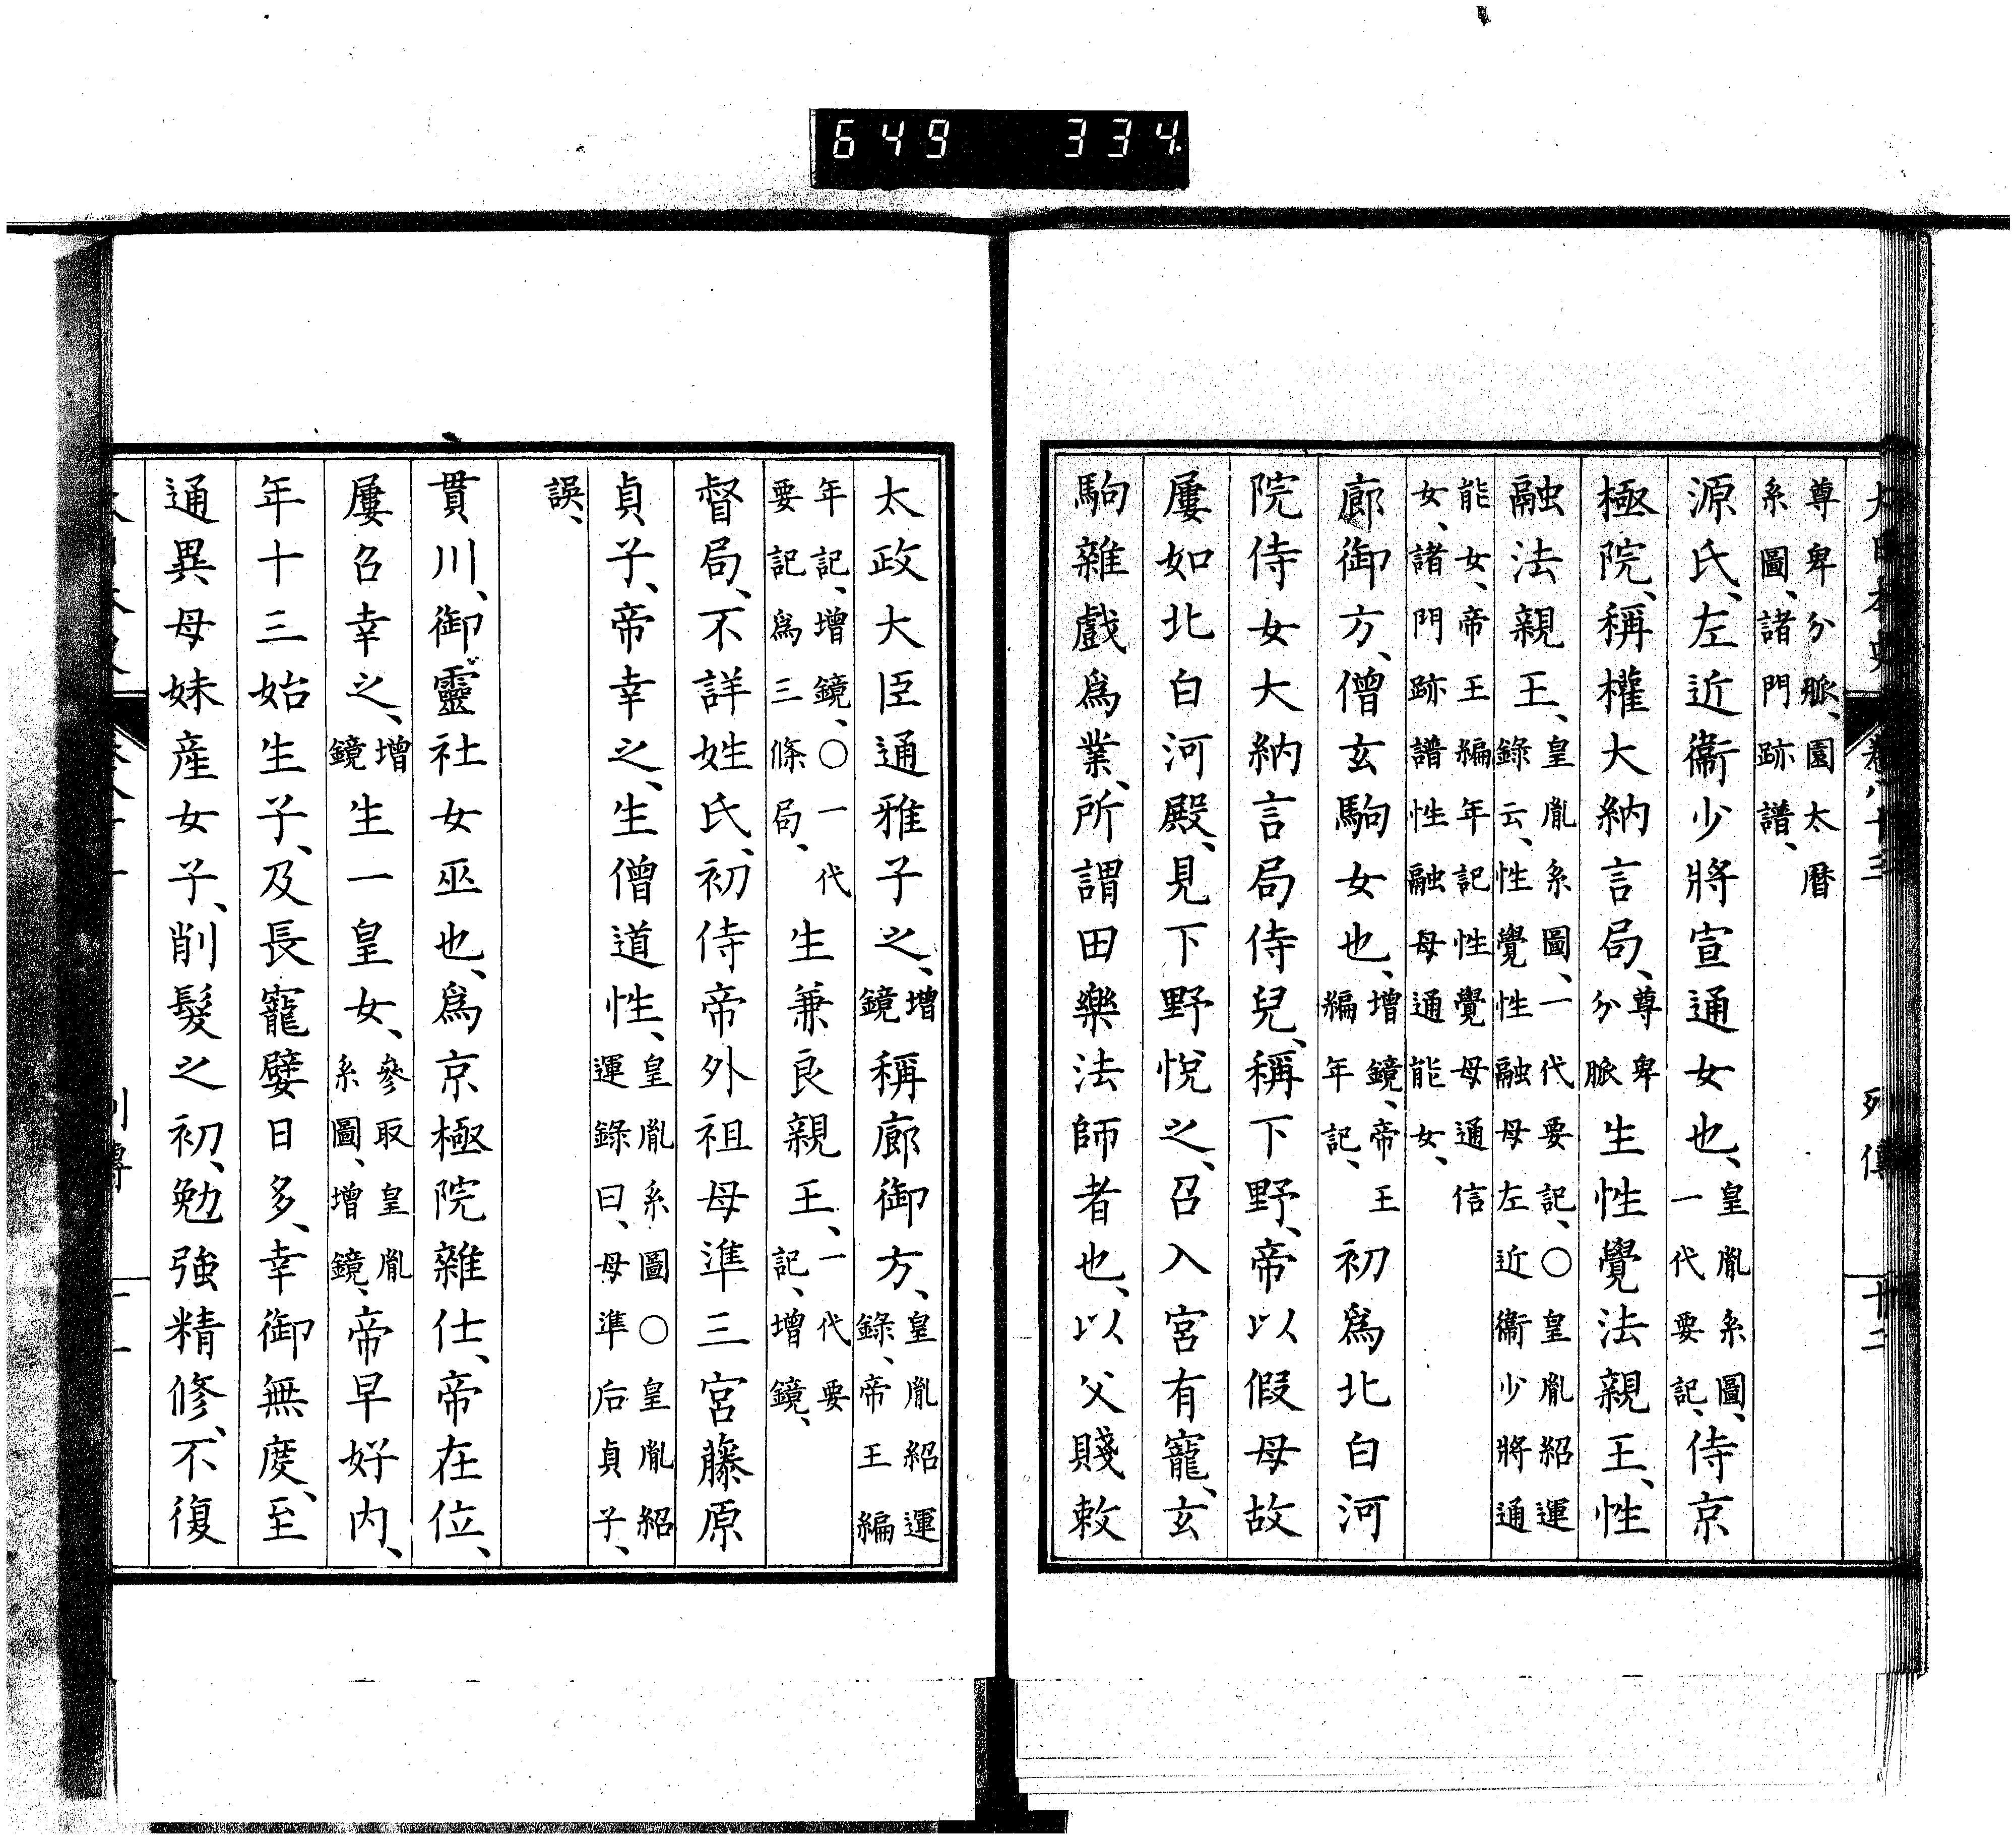 大日本史 卷八十三 列傳 十二
尊卑分脈、園太曆
系圖、諸門跡譜、
源氏、左近衞少將宣通女也、皇胤系圖、一代要記、侍京
極院、稱權大納言局、尊卑分脈生性覺法親王、性
融法親王、皇胤系圖、一代要記、〇皇胤紹運錄云、性覺性融母左近衞少將通
能女、帝王編年記性覺母通信
女、諸門跡譜性融母通能女、
廊御方、僧玄駒女也、增鏡、帝王編年記、初爲北白河
院侍女大納言局侍兒、稱下野、帝以假母故
屢如北白河殿、見下野悅之、召入宮有寵、玄
駒雜戲爲業、所謂田樂法師者也、以父賤敕
太政大臣通雅子之、增鏡稱廊御方、皇胤紹運錄、帝王編
年記、增鏡、〇一代要記爲三條局、生兼良親王、一代要記、增鏡、
督局、不詳姓氏、初侍帝外祖母準三宮藤原
貞子、帝幸之、生僧道性、皇胤系圖〇皇胤紹運錄曰、母準后貞子、
誤、
貫川、御靈社女巫也、爲京極院雜仕、帝在位、
屢召幸之、增鏡生一皇女、參取皇胤系圖、增鏡、帝早好內、
年十三始生子、及長寵嬖日多、幸御無度、至
通異母妹產女子、削髮之初、勉強精修、不復
649 334